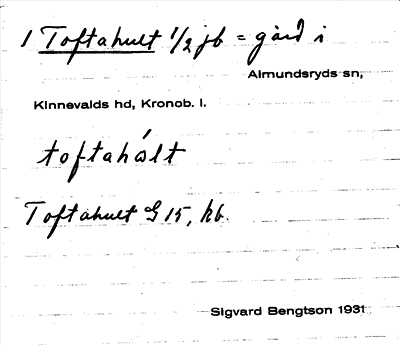 1 Toftahult 1/2 jb = gård i
Almundsryds sn,
Kinnevalds hd, Kronob. l.
toftahól̀t
Toftahult G 15, kb.
Sigvard Bengtson 1931